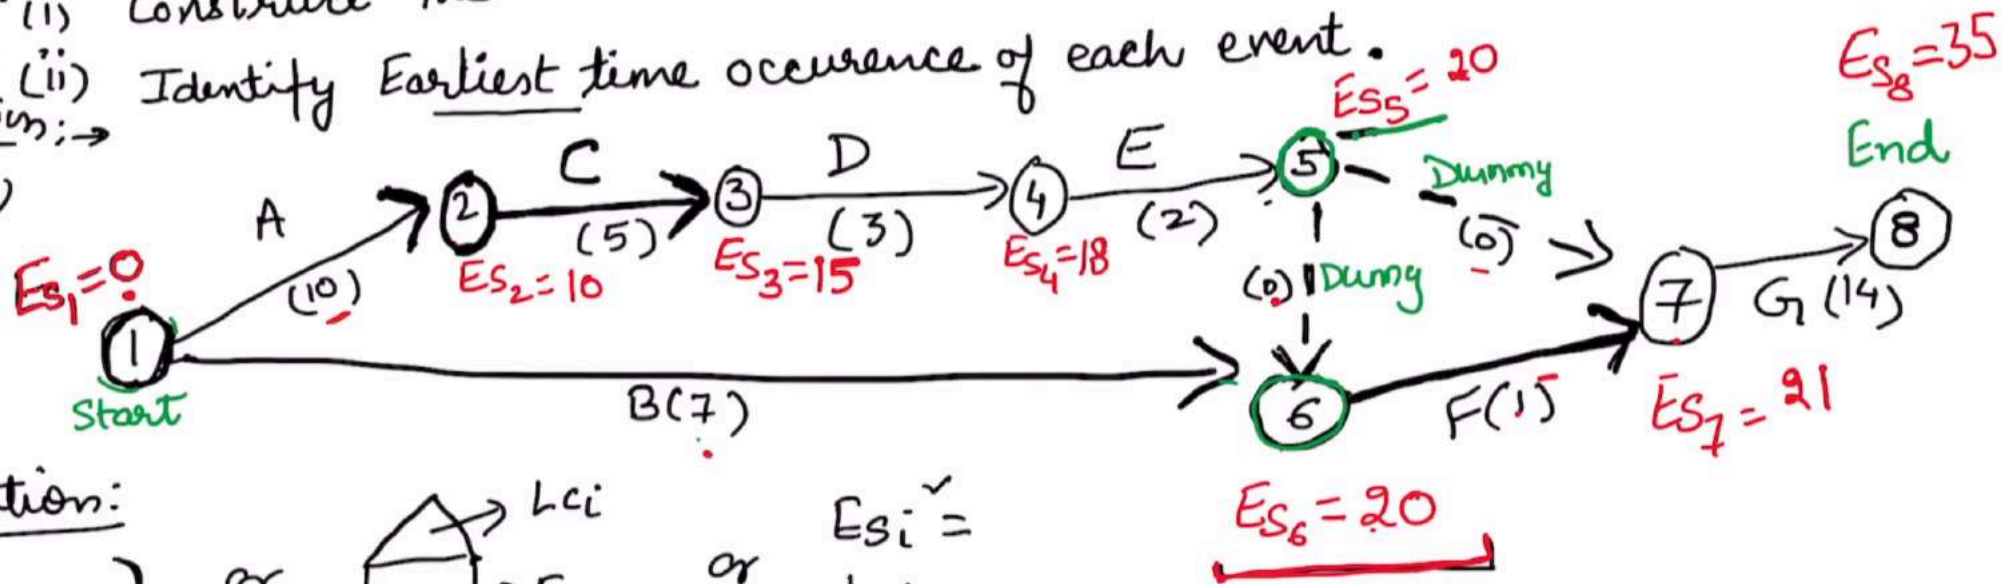 (i) Construct
(ii) Identify Earliest time occurence of each event.
Es5 = 20
Es8 = 35
End
C
D
E
5
Dummy
A
2
3
4
8
(5)
(3)
(2)
(0)
Es1 = 0
(10)
Es2 = 10
Es3 = 15
Es4 = 18
(0)
Dumy
7
G (14)
1
Start
B(7)
6
F(1)
Es7 = 21
tion:
Lci
Esi =
Es6 = 20
or
or